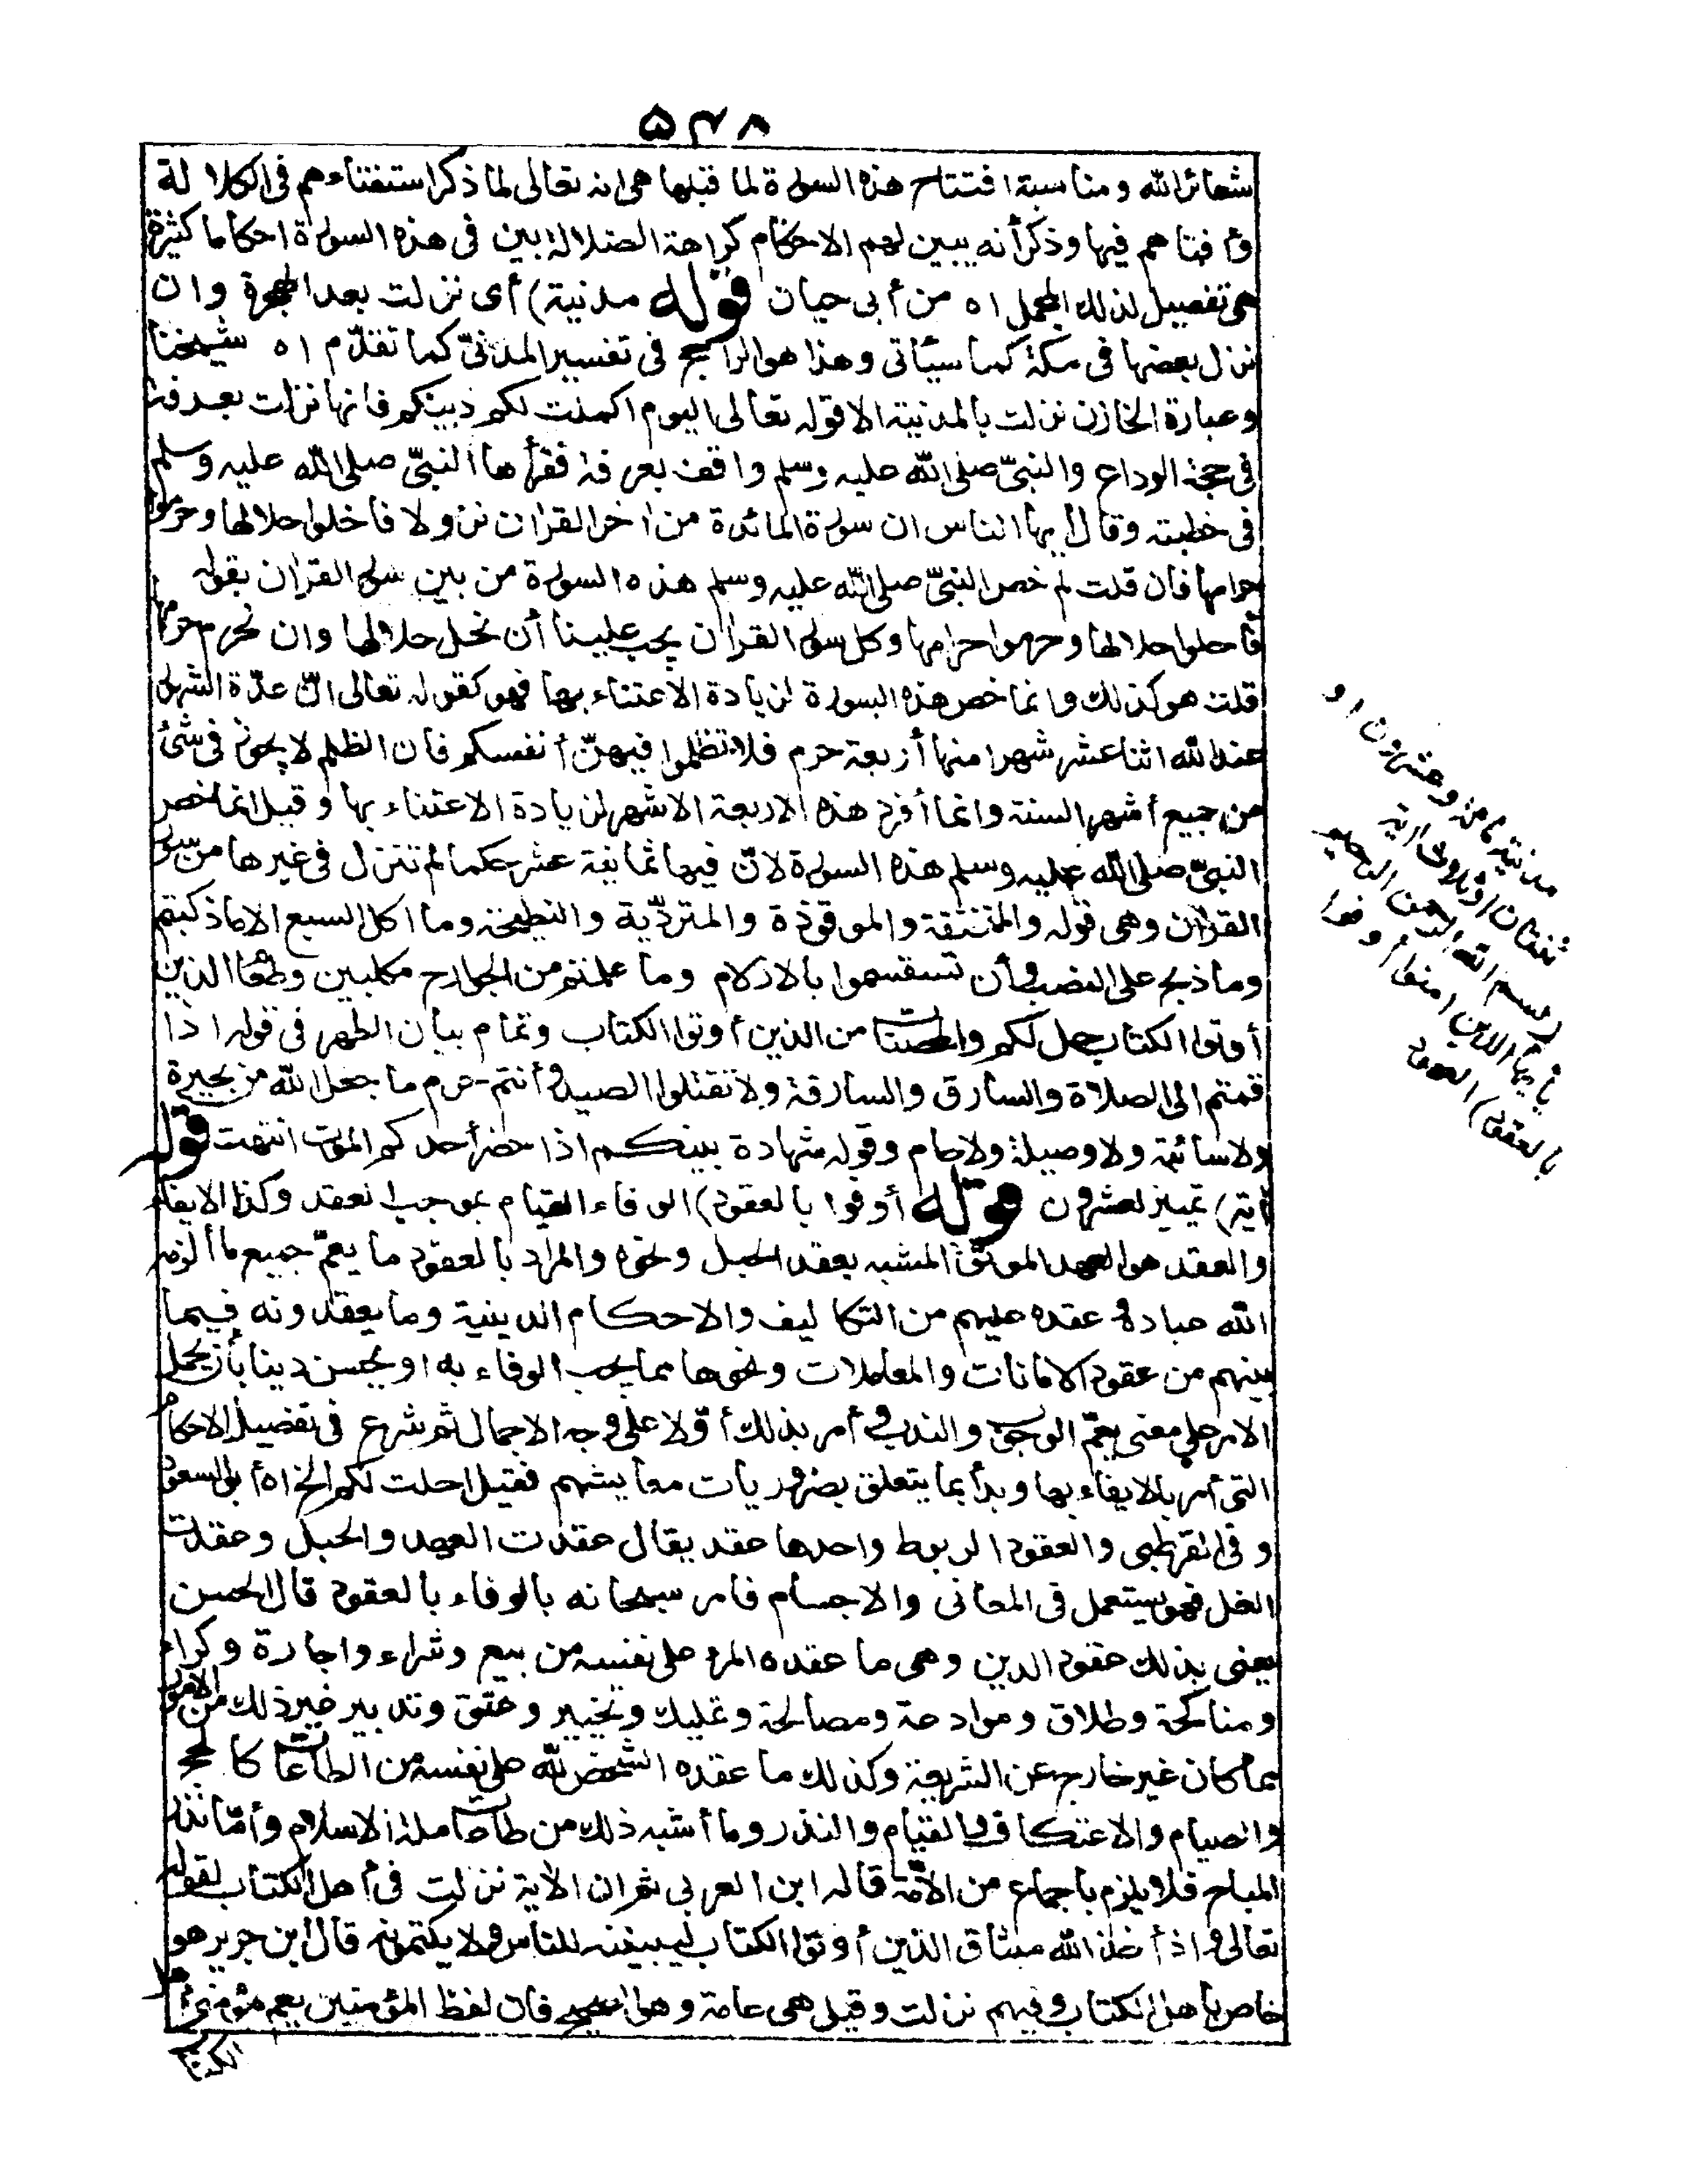 ۵۴۸
شعائر الله ومناسبة افتتاح هذه السورة لما قبلها هى انه تعالى لما ذكر استفتاءهم فى الكلالة
وأفتاهم فيها وذكر أنه يبين لهم الاحكام كراهة الضلالة بين فى هذه السورة احكاما كثيرة
هى تفصيل لذلك المجمل اه من أبى حيان قوله مدنية) أى نزلت بعد الهجرة وان
نزل بعضها فى مكة كما سيأتى وهذا هو الراجح فى تفسير المدنىّ كما تقدّم اه شيخنا
وعبارة الخازن نزلت بالمدينة الا قوله تعالى اليوم اكملت لكم دينكم فانها نزلت بعرفة
فى حجة الوداع والنبىّ صلى الله عليه وسلم واقف بعرفة فقرأها النبىّ صلى الله عليه وسلم
فى خطبته وقال يٰأيها الناس ان سورة المائدة من اخر القران نزولا فأحلوا حلالها وحرموا
حرامها فان قلت لم خص النبىّ صلى الله عليه وسلم هذه السورة من بين سور القران بقوله
فأحلوا حلالها وحرموا حرامها وكل سور القران يجب علينا أن نحل حلالها وان نحرم حرامها
قلت هو كذلك وانما خص هذه السورة لزيادة الاعتناء بها فهو كقوله تعالى انّ عدّة الشهور
عند الله اثنا عشر شهرا منها أربعة حرم فلا تظلموا فيهنّ أنفسكم فان الظلم لا يجوز فى شئ
من جميع أشهر السنة وانما أفرد هذه الاربعة الاشهر لزيادة الاعتناء بها وقيل انما خص
النبىّ صلى الله عليه وسلم هذه السورة لانّ فيها ثمانية عشر حكما لم تنزل فى غيرها من سور
القرآن وهى قوله والمنخنقة والموقوذة والمتردّية والنطيحة وما اكل السبع الا ما ذكيتم
وما ذبح على النصب وأن تستقسموا بالازلام وما علمتم من الجوارح مكلبين وطعام الذين
أوتوا الكتاب حل لكم والمحصنات من الذين أوتوا الكتاب وتمام بيان الطهر فى قوله اذا
قمتم الى الصلاة والسارق والسارقة ولا تقتلوا الصيد وأنتم حرم ما جعل الله من بحيرة
ولا سائبة ولا وصيلة ولا حام وقوله شهادة بينكم اذا حضر أحدكم الموت انتهت قوله
آية) تمييز لعشرون قوله أوفوا بالعقود) الوفاء القيام بموجب العقد وكذا الايفاء
والعقد هو العهد الموثق المشبه بعقد الحبل ونحوه والمراد بالعقود ما يعمّ جميع ما ألزمه
الله عباده وعقده عليهم من التكاليف والاحكام الدينية وما يعقدونه فيما
بينهم من عقود الامانات والمعاملات ونحوها مما يجب الوفاء به او يحسن دينا بأن يحمل
الامر على معنى يعمّ الوجوب والندب أمر بذلك أوّلا على وجه الاجمال ثم شرع فى تفصيل الاحكام
التى أمر بالايفاء بها وبدأ بما يتعلق بضروريات معايشهم فقيل احلت لكم الخ اه أبو السعود
وفى القرطبى والعقود الربوط واحدها عقد يقال عقدت العهد والحبل وعقدت
العسل فهو يستعمل فى المعانى والاجسام فامر سبحانه بالوفاء بالعقود قال الحسن
يعنى بذلك عقود الدين وهى ما عقده المرء على نفسه من بيع وشراء واجارة وكراء
ومناكحة وطلاق وموادعة ومصالحة وتمليك وتخيير وعتق وتدبير غير ذلك من الامور
مما كان غير خارج عن الشريعة وكذلك ما عقده الشخص لله على نفسه من الطاعات كالحج
والصيام والاعتكاف والقيام والنذر وما أشبه ذلك من طاعات ملة الاسلام وأمّا نذر
المباح فلا يلزم بأجماع من الأمّة قاله ابن العربى ثم ان الآية نزلت فى أهل الكتاب لقوله
تعالى واذ أخذ الله ميثاق الذين أوتوا الكتاب ليبيننه للناس ولا يكتمونه قال ابن جرير هو
خاص بأهل الكتاب وفيهم نزلت وقيل هى عامة وهو الصحيح فان لفظ المؤمنين يعم مؤمنى أهل
الكتاب
مدنية مائة وعشرون او
ثنتان او ثلاث اية
بسم الله الرحمن الرحيم
يأيها الذين امنوا أوفوا
بالعقود) العهود